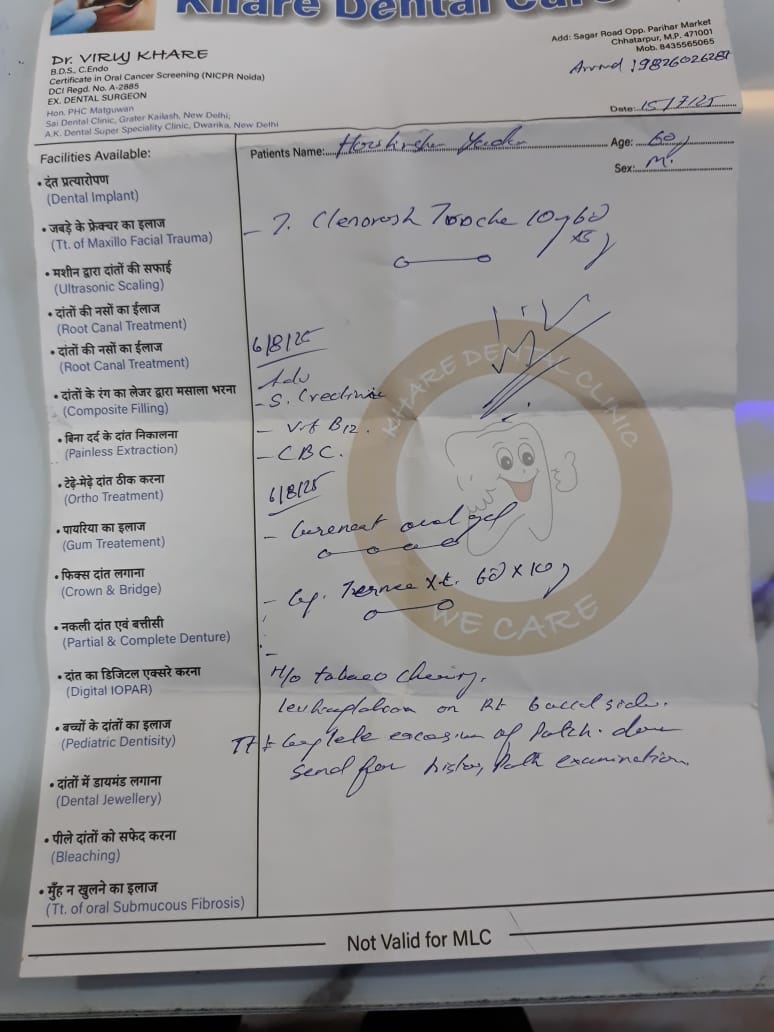 Khare Dental Care
Dr. VIRUJ KHARE
B.D.S., C.Endo
Certificate in Oral Cancer Screening (NICPR Noida)
DCI Regd. No. A-2885
EX. DENTAL SURGEON
Hon. PHC Matguwan
Sai Dental Clinic, Grater Kailash, New Delhi;
A.K. Dental Super Speciality Clinic, Dwarika, New Delhi
Add: Sagar Road Opp. Parihar Market
Chhatarpur, M.P. 471001
Mob. 8435565065
Date: 15/7/25
Patients Name:
Age: 60
Sex: M.
Facilities Available:
• दंत प्रत्यारोपण
(Dental Implant)
• जबड़े के फ्रेक्चर का इलाज
(Tt. of Maxillo Facial Trauma)
• मशीन द्वारा दांतों की सफाई
(Ultrasonic Scaling)
• दांतों की नसों का ईलाज
(Root Canal Treatment)
• दांतों की नसों का ईलाज
(Root Canal Treatment)
• दांतों के रंग का लेजर द्वारा मसाला भरना
(Composite Filling)
• बिना दर्द के दांत निकालना
(Painless Extraction)
• टेढ़े-मेढ़े दांत ठीक करना
(Ortho Treatment)
• पायरिया का इलाज
(Gum Treatement)
• फिक्स दांत लगाना
(Crown & Bridge)
• नकली दांत एवं बत्तीसी
(Partial & Complete Denture)
• दांत का डिजिटल एक्सरे करना
(Digital IOPAR)
• बच्चों के दांतों का इलाज
(Pediatric Dentisity)
• दांतों में डायमंड लगाना
(Dental Jewellery)
• पीले दांतों को सफेद करना
(Bleaching)
• मुँह न खुलने का इलाज
(Tt. of oral Submucous Fibrosis)
6/8/25
Adv
- Vit B12.
- CBC.
6/8/25
oral gel
H/o tobacco
on Rt buccal side.
of Patch. done
send for examination.
KHARE DENTAL CLINIC
WE CARE
Not Valid for MLC